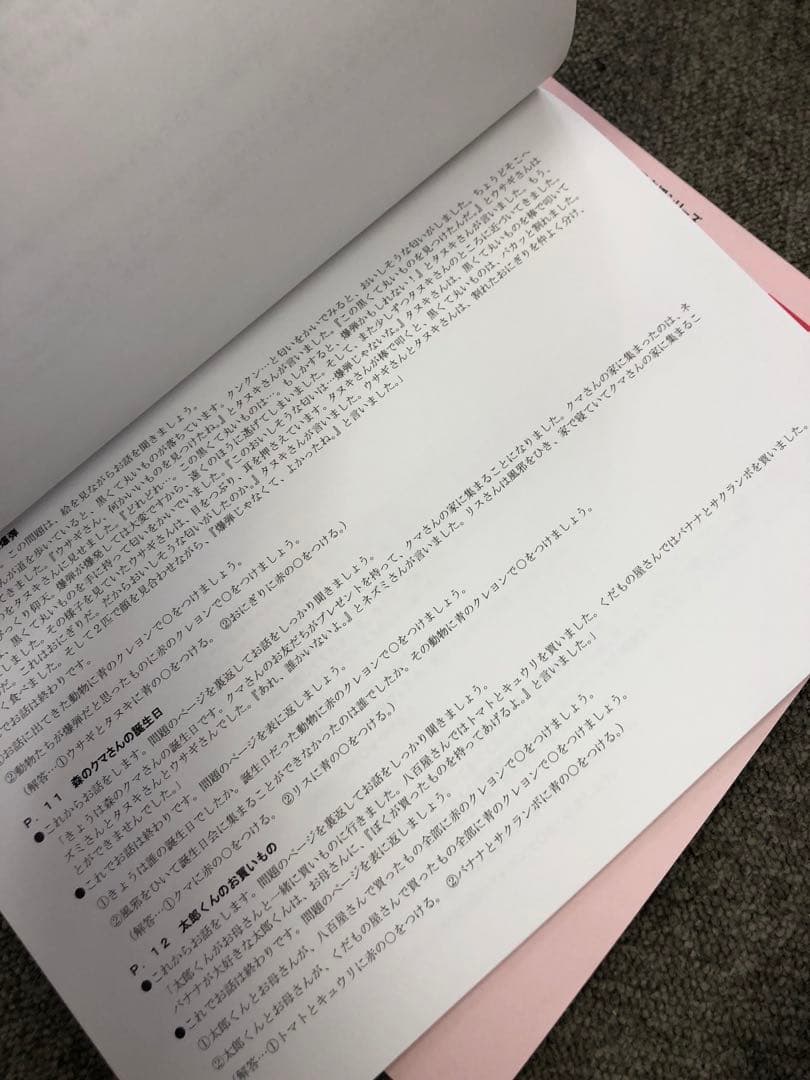 爆弾
この問題は、絵を見ながらお話を聞きましょう。
んが道を歩いていると、黒くて丸いものが落ちています。クンクン…と匂いをかいでみると、おいしそうな匂いがしました。ちょうどそこへ
てきました。『ウサギさん、何かいいものを見つけたね。』とタヌキさんが言いました。『この黒くて丸いものを見つけたんだ。』とウサギさんは
のをタヌキさんに見せました。『どれどれ…。この黒くて丸いものは…。もしかすると、爆弾かもしれない！』とタヌキさんが言いました。もう、
びっくり仰天。爆弾が爆発しては大変ですから、遠くのほうに逃げてしまいました。そして、また少しずつタヌキさんのところに近づいてきました。
、黒くて丸いものを手に持って匂いをかいでいました。『このおいしそうな匂いは…爆弾じゃないな。』タヌキさんは、黒くて丸いものを棒で叩いて
しました。その様子を見ていたウサギさんは、目をつぶり、耳を押さえています。タヌキさんが棒で叩くと、黒くて丸いものは、パカッと割れました。
だ。これはおにぎりだ。だからおいしそうな匂いがしたのか。』タヌキさんが言いました。ウサギさんとタヌキさんは、割れたおにぎりを仲よく分け、
く食べました。そして２匹で顔を見合わせながら、『爆弾じゃなくて、よかったね。』と言いました。」
でお話は終わりです。
お話に出てきた動物に青のクレヨンで〇をつけましょう。
②動物たちが爆弾だと思ったものに赤のクレヨンで〇をつけましょう。
（解答…①ウサギとタヌキに青の〇をつける。　②おにぎりに赤の〇をつける。）
P．11　森のクマさんの誕生日
●これからお話をします。問題のページを裏返してお話をしっかり聞きましょう。
「きょうは森のクマさんの誕生日です。クマさんのお友だちがプレゼントを持って、クマさんの家に集まることになりました。クマさんの家に集まったのは、ネ
ズミさんとタヌキさんとウサギさんでした。『あれ、誰かいないよ。』とネズミさんが言いました。リスさんは風邪をひき、家で寝ていてクマさんの家に集まるこ
とができませんでした。」
●これでお話は終わりです。問題のページを表に返しましょう。
①きょうは誰の誕生日でしたか。誕生日だった動物に赤のクレヨンで〇をつけましょう。
②風邪をひいて誕生日会に集まることができなかったのは誰でしたか。その動物に青のクレヨンで〇をつけましょう。
（解答…①クマに赤の〇をつける。　②リスに青の〇をつける。）
P．12　太郎くんのお買いもの
●これからお話をします。問題のページを裏返してお話をしっかり聞きましょう。
「太郎くんがお母さんと一緒に買いものに行きました。八百屋さんではトマトとキュウリを買いました。くだもの屋さんではバナナとサクランボを買いました。
バナナが大好きな太郎くんは、お母さんに、『ぼくが買ったものを持ってあげるよ。』と言いました。」
●これでお話は終わりです。問題のページを表に返しましょう。
①太郎くんとお母さんが、八百屋さんで買ったもの全部に赤のクレヨンで〇をつけましょう。
②太郎くんとお母さんが、くだもの屋さんで買ったもの全部に青のクレヨンで〇をつけましょう。
（解答…①トマトとキュウリに赤の〇をつける。　②バナナとサクランボに青の〇をつける。）